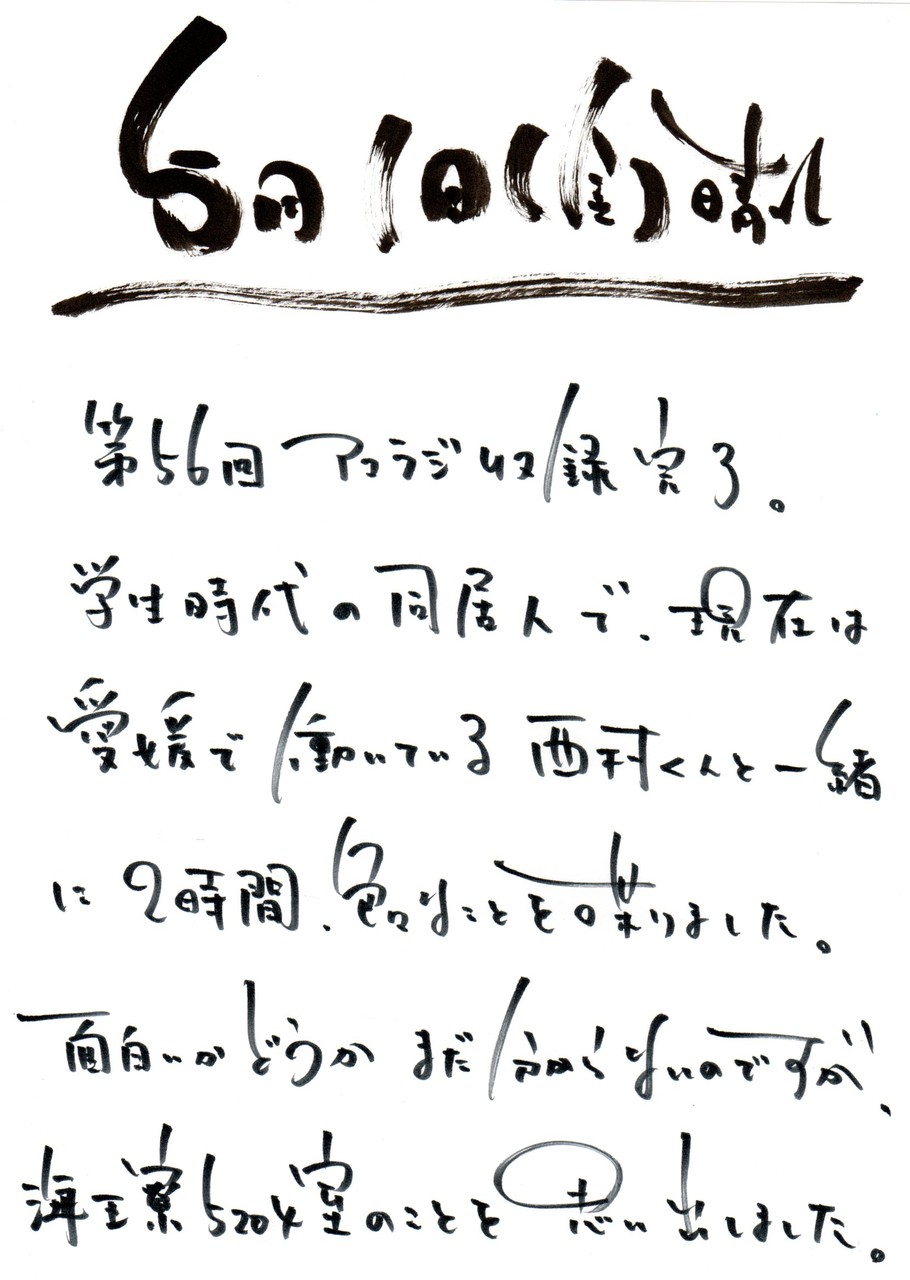 5月1日(金)晴れ
第56回 アコラジ収録完了。
学生時代の同居人で、現在は
愛媛で働いている西村くんと一緒
に2時間、色々なことを喋りました。
面白いかどうかまだ分からないのですが、
海王寮5204室のことを思い出しました。